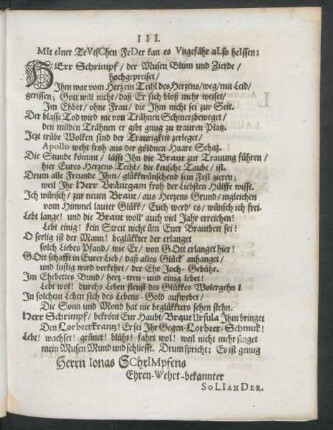 III.
MIt eIner TeVtsChen FeDer kan es Vngefähr aLso heIssen:
HErr Schrimpf/ der Musen Blum und Zierde/
hochgepreiset/
Ihm war vom Herzein Teihl des Herzens/ weg/ mit Leid/
gerissen; Gott will nicht/ daß Er sich bloß mehr weiset/
Im Ehbet/ ohne Frau/ die Ihm nicht sei zur Seit.
Der blasse Tod wird nie von Trähnen Schmerzbeweget/
den milden Trähnen er gibt gnug zu trauren Platz.
Jezt trübe Wolken sind der Traurigkeit zerleget/
Apollo weht froh aus der göldnen Haare Schaz.
Die Stunde kömmt/ lässt Ihn die Braut zur Trauung führen/
hier Eures Herzens Teihl/ die keusche Taube/ ist.
Drum alle Freunde Ihm/ glükkwünschend sein Fest zieren;
weil Ihr Herr Bräutgam froh der Liebsten Hülffe wisst.
Ich wünsch/ zur neuen Braut/ aus Herzens Grund/ ingleichen
vom Himmel lauter Glükk/ Euch werd' es/ wünsch ich frei.
Lebt lange! und die Braut woll' auch viel Jahr erreichen!
Lebt einig! kein Streit nicht üm Euer Brautbett sei!
O seelig ist der Mann! beglükkter der erlanget
solch Liebes-Pfand/ wie Er/ von GOtt erlanget hier!
GOtt schafft in Eurer Lieb/ daß alles Glück anhanget/
und lustig wird verkehrt/ der Ehe Joch-Gebühr.
Im Ehebettes Bund/ herz-treu- und einig lebet!
Lebt wol! durchs Leben fleust des Glükkes Wolergehn!
In solchem Leben sich des Lebens-Gold aufwebet/
Die Sonn und Mond hat nie beglükkters sehen stehn.
Herr Schrimpf/ bekrönt Eur Haubt/ Braut Ursula Ihm bringet
Den Lorbeerkranz! Er sei Ihr Gegen-Lorbeer-Schmuk!
Lebt! wachset! grünet! blüht! fahrt wol! weil nicht mehr singet
mein Musen Mund und schliesst. Drum spricht: Es ist genug
Herrn Ionas SChrIMpfens
Ehren-Wehrt-bekannter
SoLIanDER.